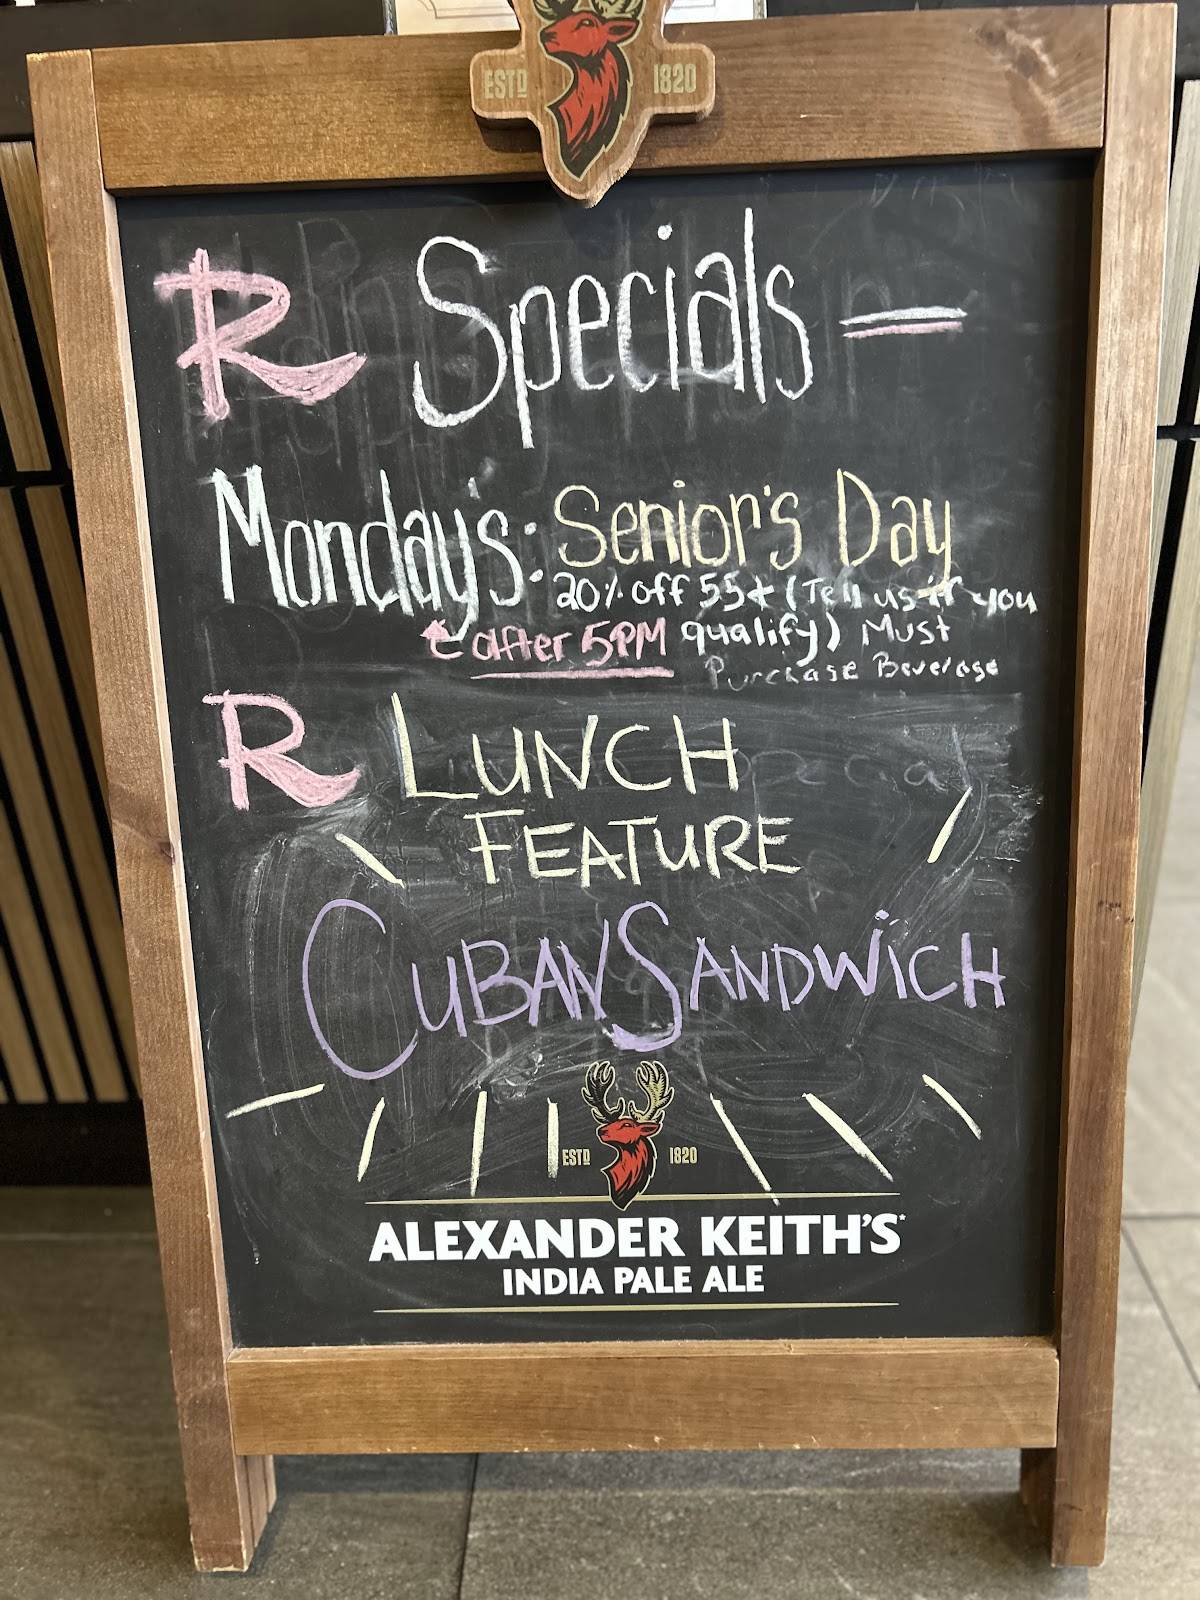 ESTD 1820
R Specials
Monday's: Senior's Day
20% off 55+ (Tell us if you
after 5PM qualify) Must
Purchase Beverage
R LUNCH
FEATURE
CUBAN SANDWiCH
ESTD 1820
ALEXANDER KEITH'S*
INDIA PALE ALE